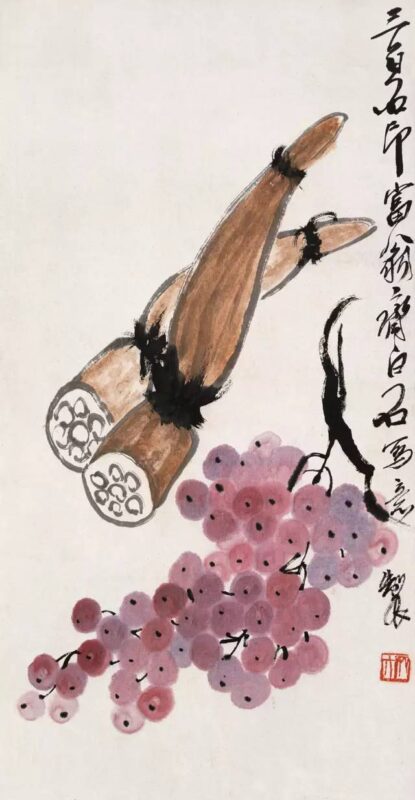 三百石印富翁齊白石寫意